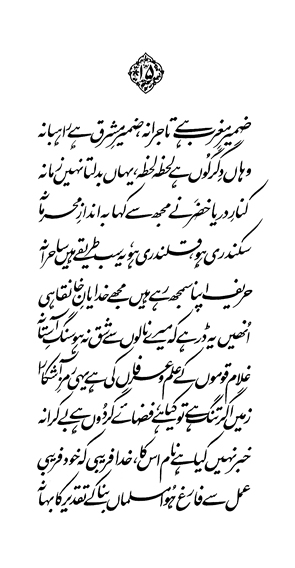 ۱۵
ضمیرِ مغرب ہے تاجرانہ، ضمیرِ مشرق ہے راہبانہ
وہاں دگرگوں ہے لحظہ لحظہ، یہاں بدلتا نہیں زمانہ
کنارِ دریا خضرؑ نے مجھ سے کہا بہ اندازِ محرمانہ
سکندری ہو، قلندری ہو، یہ سب طریقے ہیں ساحرانہ
حریف اپنا سمجھ رہے ہیں مجھے خدایانِ خانقاہی
اُنھیں یہ ڈر ہے کہ میرے نالوں سے شق نہ ہو سنگِ آستانہ
غلام قوموں کے علم و عرفاں کی ہے یہی رمزِ آشکارا
زمیں اگر تنگ ہے تو کیا ہے، فضائے گردوں ہے بے کرانہ
خبر نہیں کیا ہے نام اس کا، خدا فریبی کہ خود فریبی
عمل سے فارغ ہُوا مسلماں بنا کے تقدیر کا بہانہ